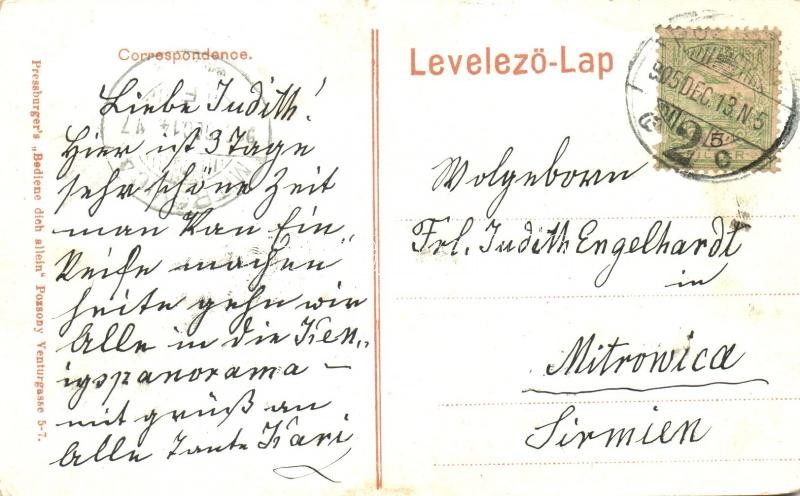 Correspondence.
Liebe Judith!
Hier ist 3 Tage
sehr schöne Zeit
man kan Ein
Reise machen
heite gehn wir
Alle in die Ken„
igspanorama –
mit grüß an
Alle Tante Kari
Pressburger's „Bediene dich allein" Pozsony Venturgasse 5-7.
Levelezö-Lap
905 DEC. 13 N 5
2
5
Wolgeborn
Frl. Judith Engelhardt
in
Mitrowica
Sirmien